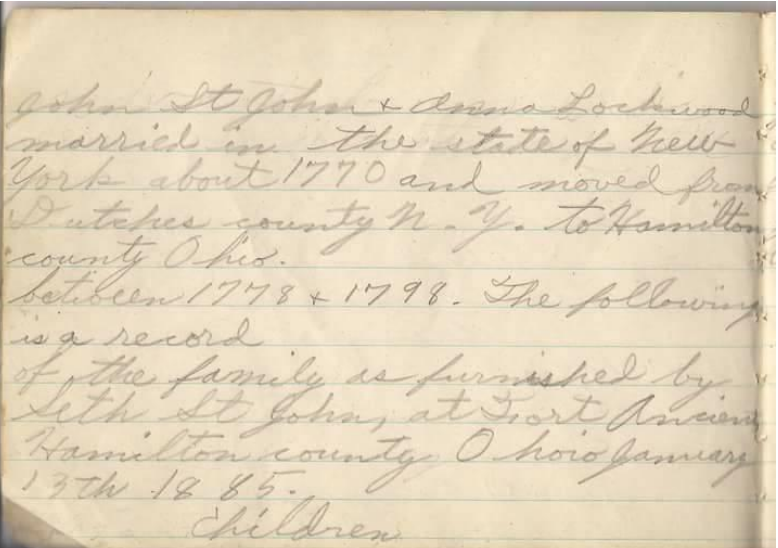 John St John & Anna Lockwood
married in the state of New
York about 1770 and moved from
Dutches county N. Y. to Hamilton
county Ohio.
between 1778 & 1798. The following
is a record
of the family as furnished by
Seth St John, at Fort Ancient
Hamilton county Ohoio January
13th 1885.
children